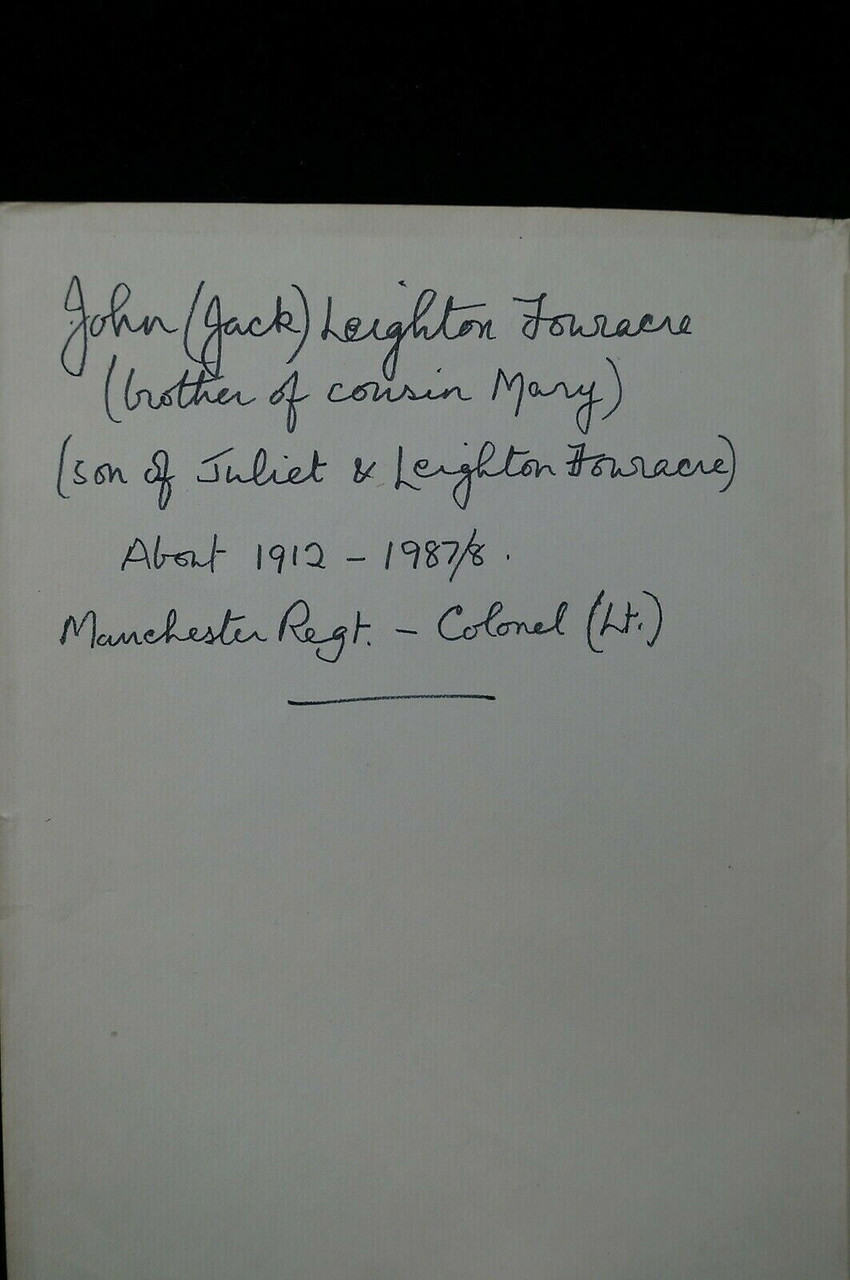 John (Jack) Leighton Fouracre
(brother of cousin Mary)
(son of Juliet & Leighton Fouracre)
About 1912 - 1987/8.
Manchester Regt. - Colonel (Lt.)